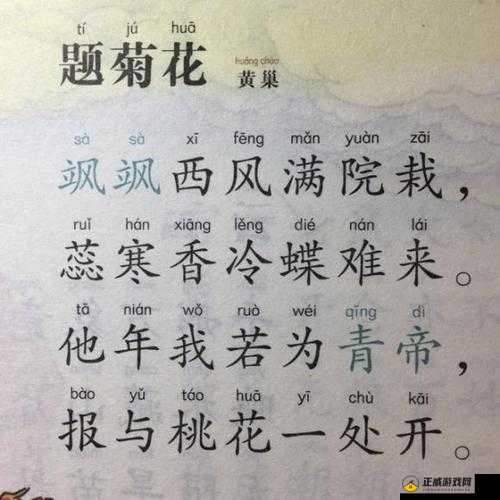 tí jú huā
题菊花
huáng cháo
黄巢
sà sà xī fēng mǎn yuàn zāi
飒飒西风满院栽，
ruǐ hán xiāng lěng dié nán lái
蕊寒香冷蝶难来。
tā nián wǒ ruò wéi qīng dì
他年我若为青帝，
bào yǔ táo huā yī chù kāi
报与桃花一处开。
正威游戏网